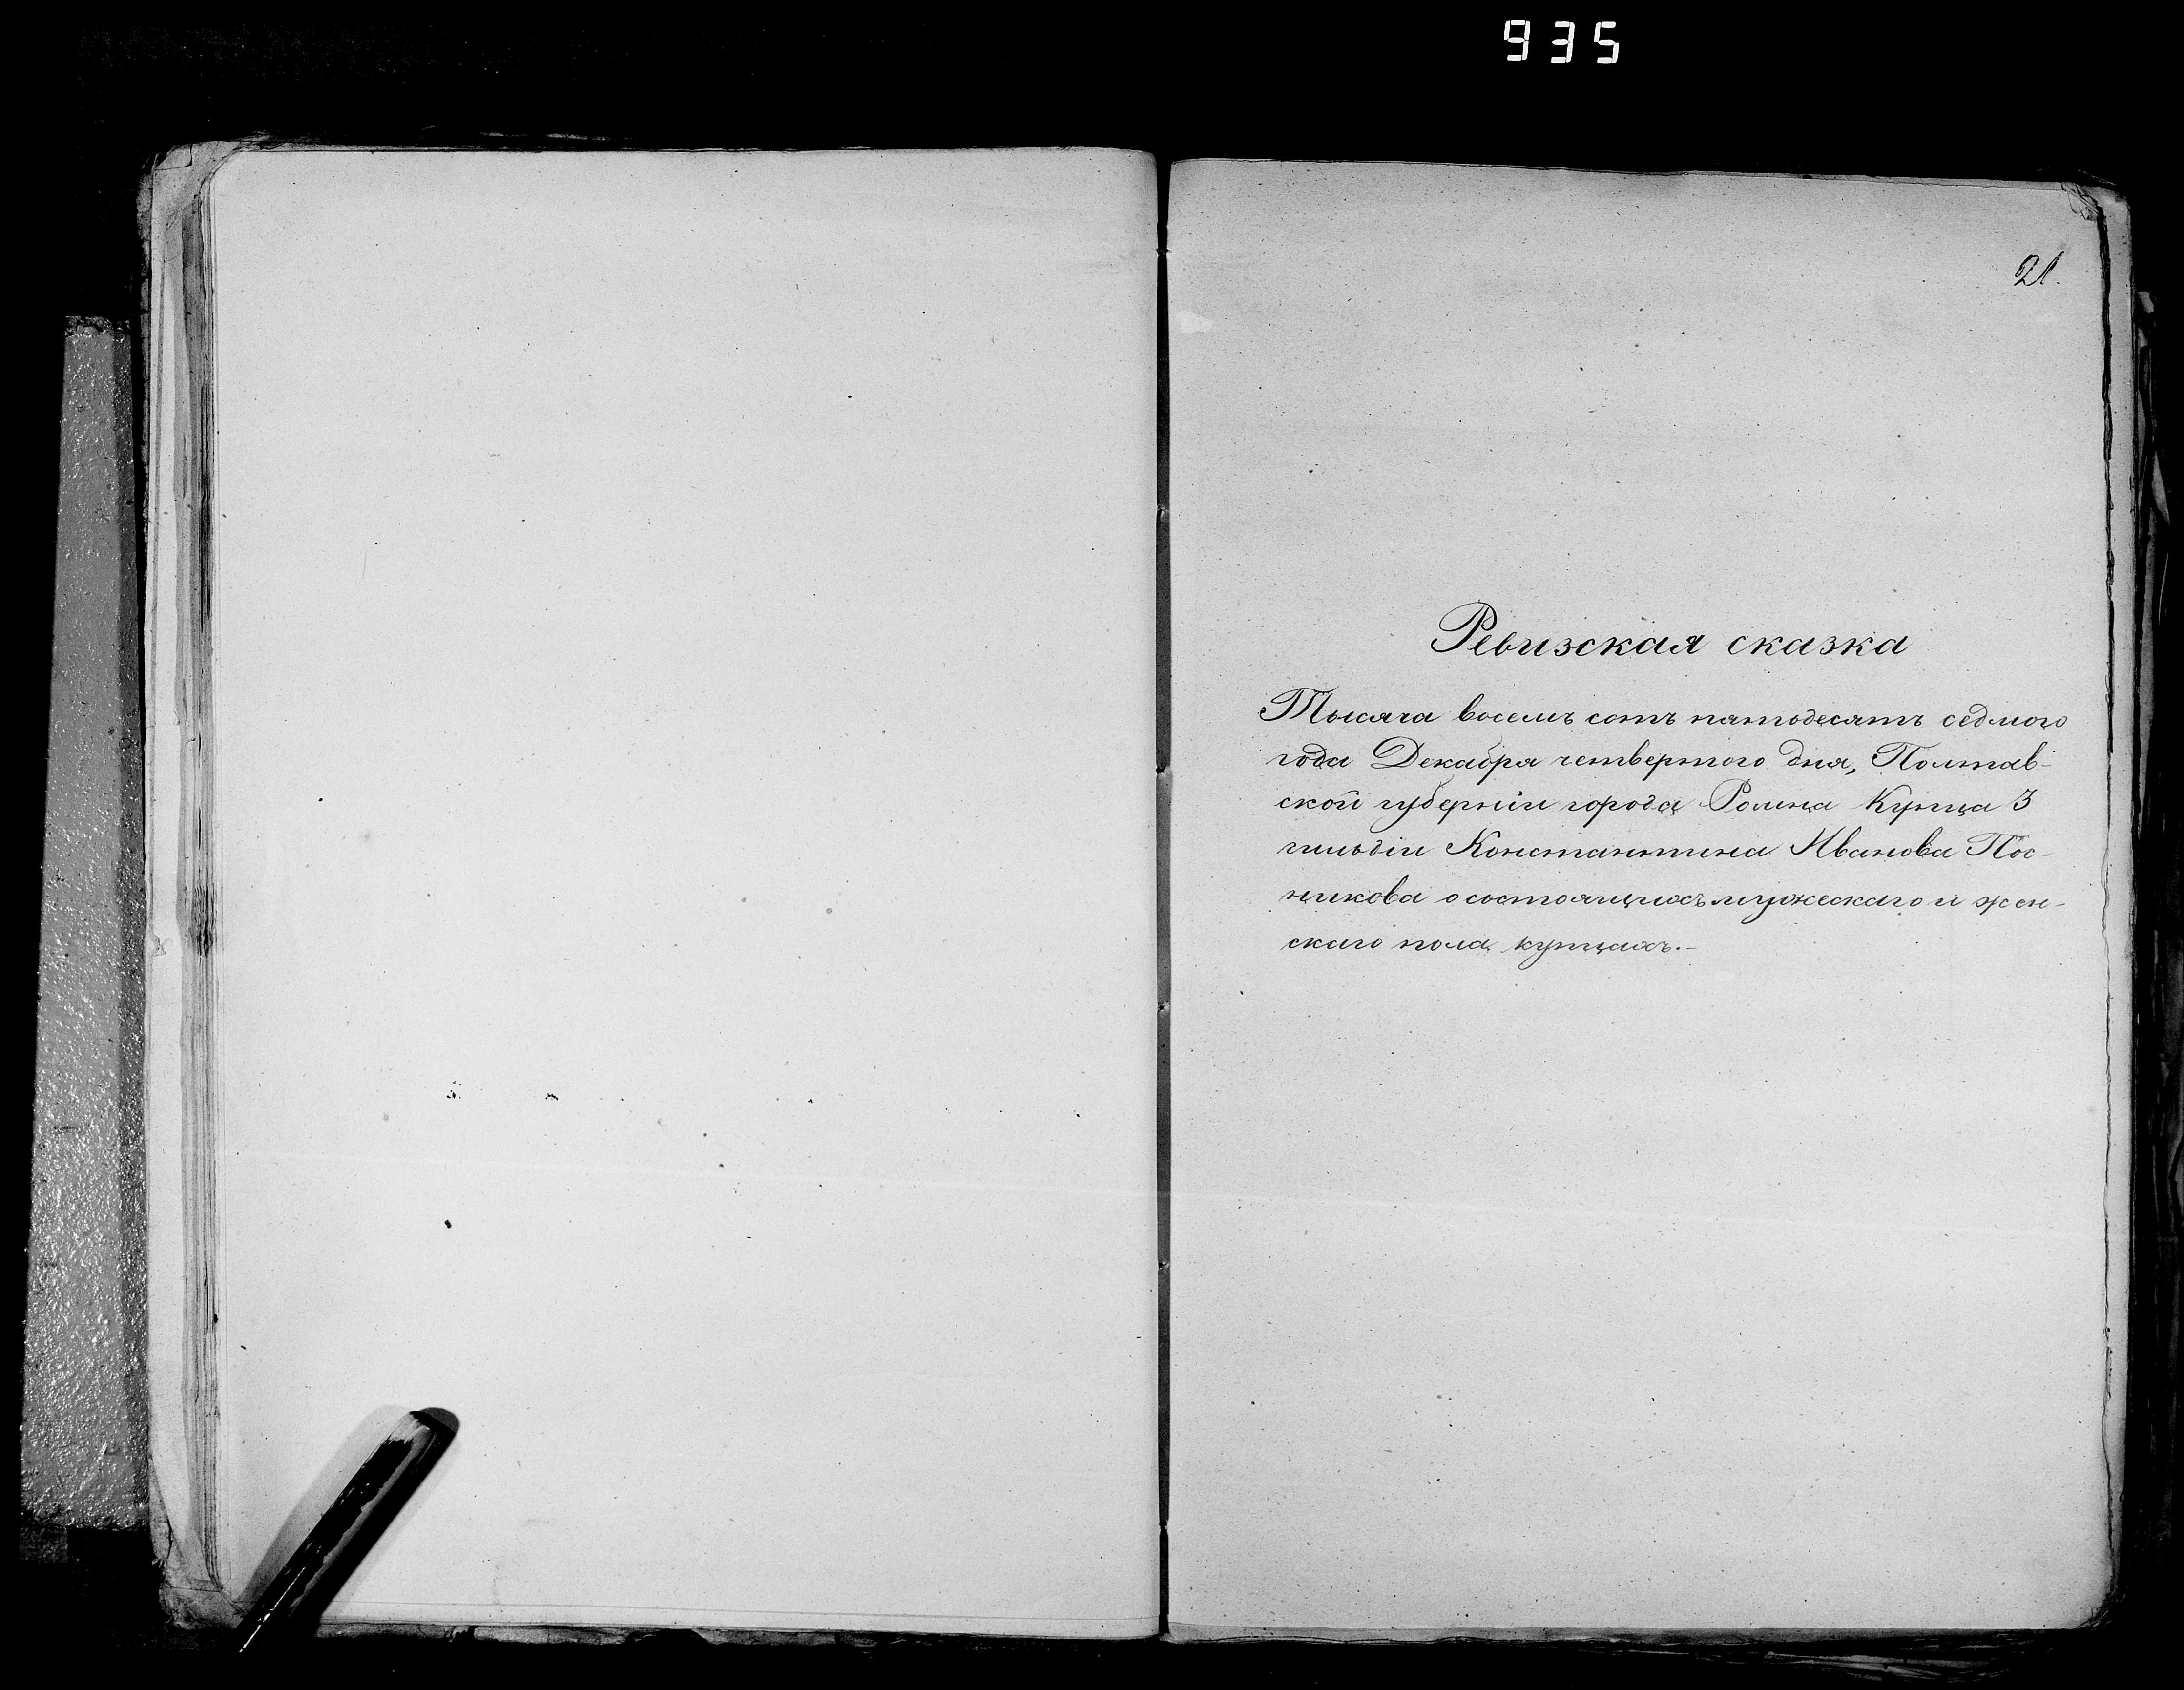 935
21.
Ревизская сказка
Тысяча восемь сотъ пятьдесятъ седмого
года Декабря четвертого дня, Полтав-
ской губерніи города Ромна Купца 3
гильдіи Константина Иванова Пос-
никова о состоящихъ мужескаго и жен-
скаго пола купцахъ.-